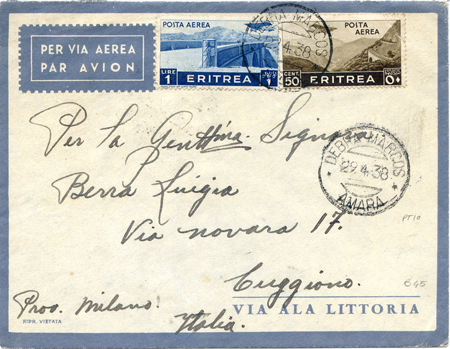 PER VIA AEREA
PAR AVION
POSTA AEREA
LIRE 1 ERITREA
POSTA AEREA
CENT. 50 ERITREA
DEBRA MARCOS
4.38
Per la Gentt/ma. Signora
Berra Luigia
Via novara 17.
Cuggiono.
Prov. Milano.
Italia.
DEBRA MARCOS
29.4.38
AMARA
PT10
RIPR. VIETATA
VIA ALA LITTORIA